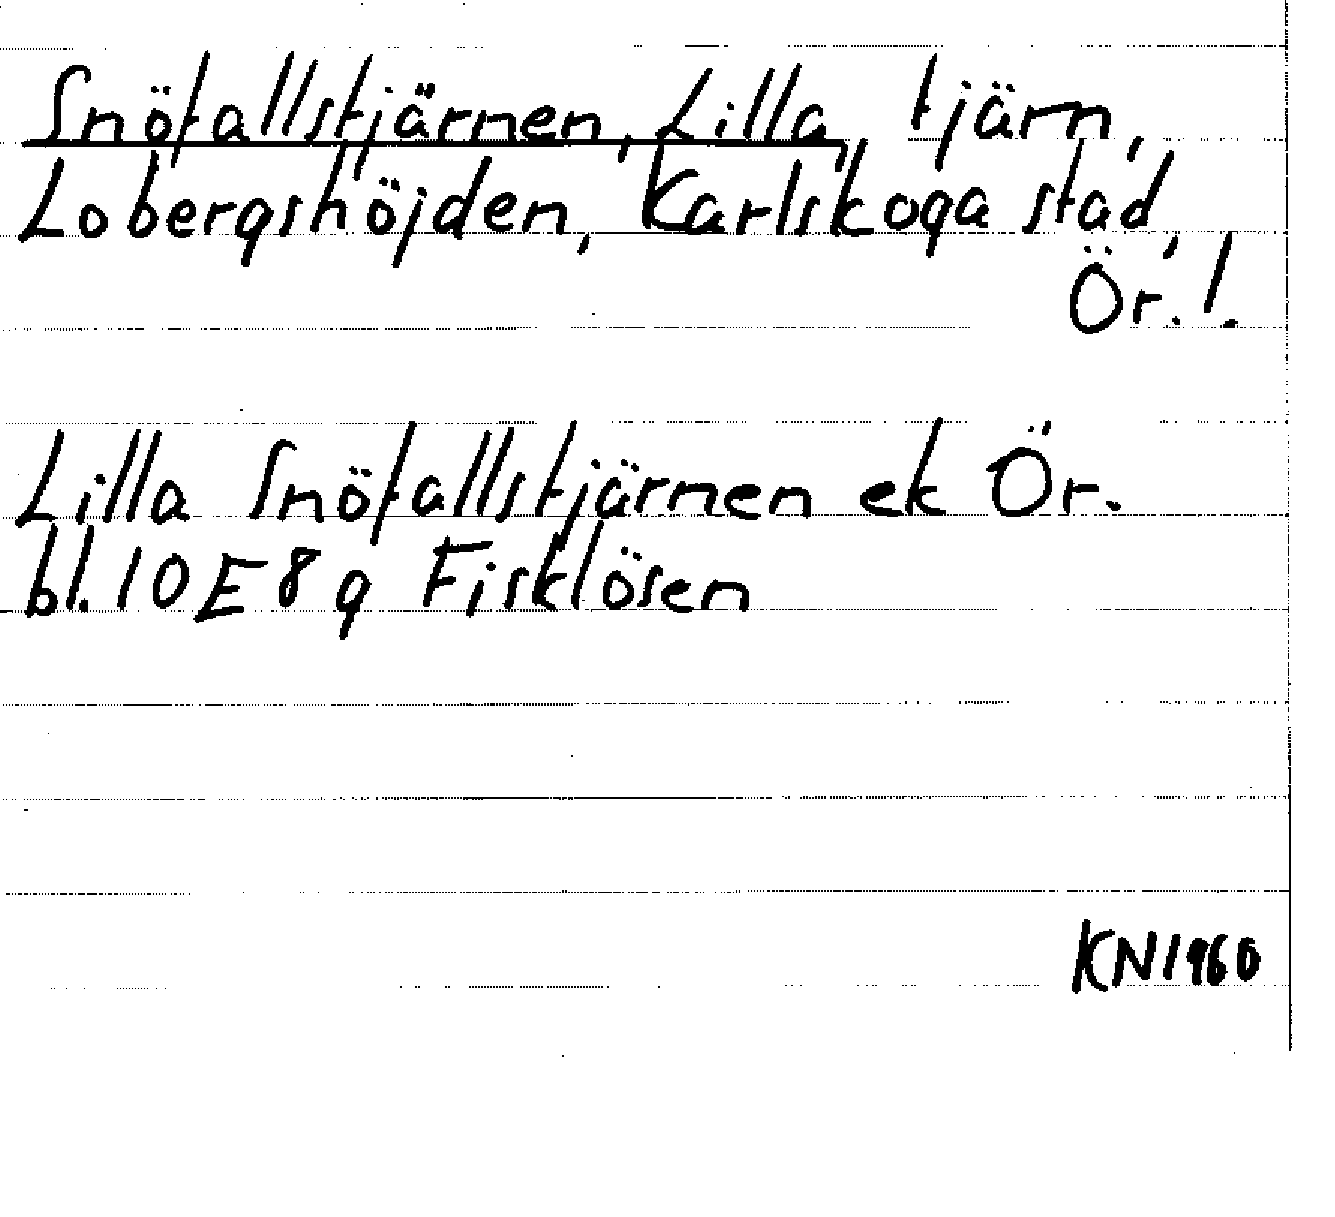 Snöfallstjärnen, Lilla, tjärn,
Lobergshöjden, Karlskoga stad,
Ör. !.
Lilla Snöfallstjärnen ek Ör.
bl. 10E8g Fisklösen
KN1960